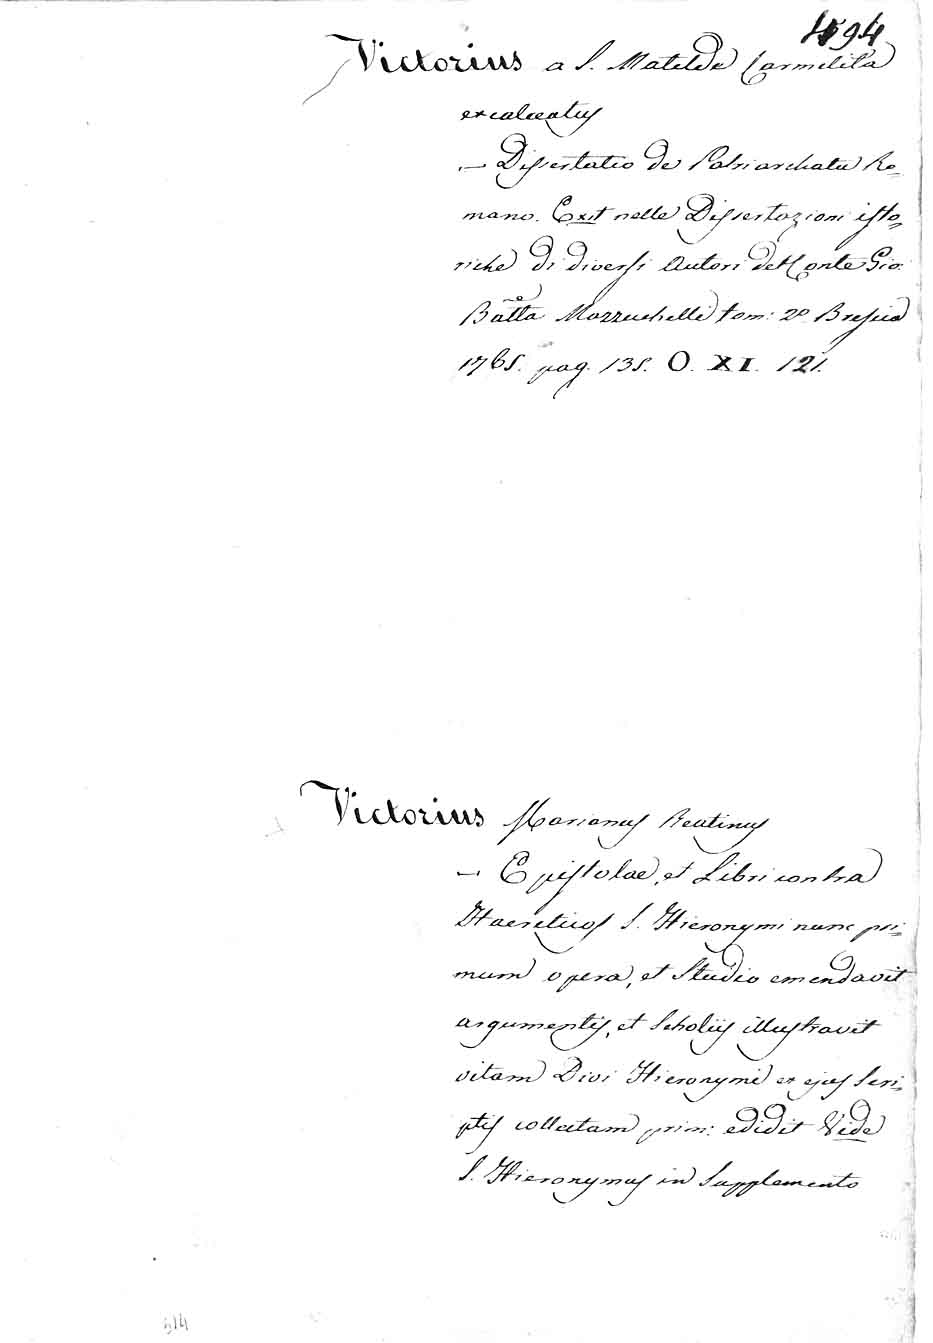 494
Victorius a S. Matilde Carmelita
excalceatus
— Dissertatio de Patriarchatu Ro-
mano. Exit nelle Dissertazioni isto-
riche di diversi Autori del Conte Gio:
Batta Mazzuchelli tom: 2º Brescia
1765. pag. 135. O. XI. 121.
Victorius Marianus Reatinus
— Epistolae, et Libri contra
Haereticos S. Hieronymi nunc pri-
mum opera, et Studio emendavit
argumentis, et Scholiis illustravit
vitam Divi Hieronymi ex ejus Scri-
ptis collectam prim: edidit Vide
S. Hieronymus in Supplemento
514